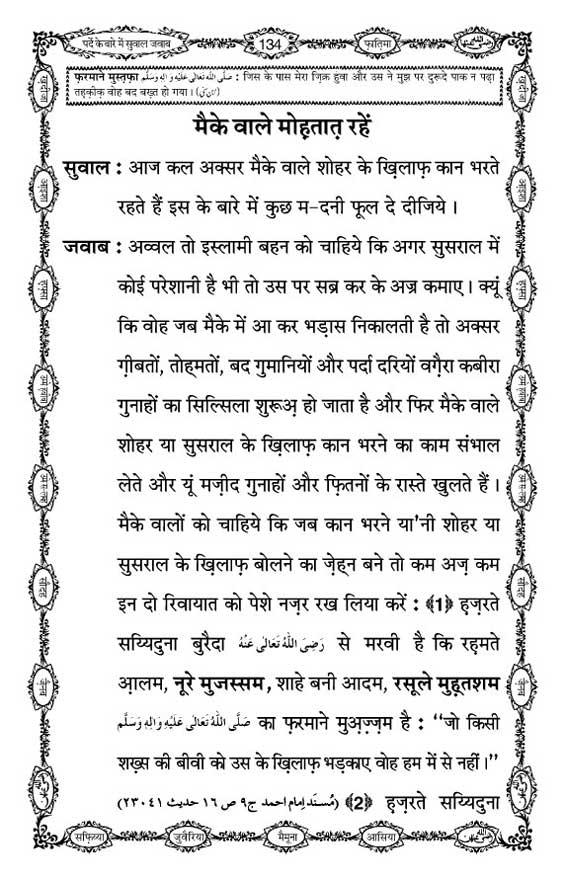 पर्दे के बारे में सुवाल जवाब
134
फ़ातिमा
फ़रमाने मुस्तफ़ा صَلَّى اللهُ تَعَالٰى عَلَيْهِ وَاٰلِهٖ وَسَلَّم : जिस के पास मेरा ज़िक्र हुवा और उस ने मुझ पर दुरूदे पाक न पढ़ा
तह़क़ीक़ वोह बद बख़्त हो गया।
मैके वाले मोह़तात़ रहें
सुवाल : आज कल अक्सर मैके वाले शोहर के ख़िलाफ़ कान भरते
रहते हैं इस के बारे में कुछ म-दनी फूल दे दीजिये ।
जवाब : अव्वल तो इस्लामी बहन को चाहिये कि अगर सुसराल में
कोई परेशानी है भी तो उस पर सब्र कर के अज्र कमाए । क्यूं
कि वोह जब मैके में आ कर भड़ास निकालती है तो अक्सर
ग़ीबतों, तोह्मतों, बद गुमानियों और पर्दा दरियों वग़ैरा कबीरा
गुनाहों का सिल्सिला शुरूअ़ हो जाता है और फिर मैके वाले
शोहर या सुसराल के ख़िलाफ़ कान भरने का काम संभाल
लेते और यूं मज़ीद गुनाहों और फ़ितनों के रास्ते खुलते हैं ।
मैके वालों को चाहिये कि जब कान भरने या'नी शोहर या
सुसराल के ख़िलाफ़ बोलने का ज़ेह्न बने तो कम अज़ कम
इन दो रिवायात को पेशे नज़र रख लिया करें : ﴾1﴿ ह़ज़रते
सय्यिदुना बुरैदा رَضِىَ اللهُ تَعَالٰى عَنْهُ से मरवी है कि रह़मते
आ़लम, नूरे मुजस्सम, शाहे बनी आदम, रसूले मुह़्तशम
صَلَّى اللهُ تَعَالٰى عَلَيْهِ وَاٰلِهٖ وَسَلَّم का फ़रमाने मुअ़ज़्ज़म है : “जो किसी
शख़्स की बीवी को उस के ख़िलाफ़ भड़काए वोह हम में से नहीं।”
(مُسنَد اِمام احمد ج٩ ص ١٦ حديث ٢٣٠٤١) ﴾2﴿ ह़ज़रते सय्यिदुना
सफ़िय्या
जुवैरिया
मैमूना
आसिया